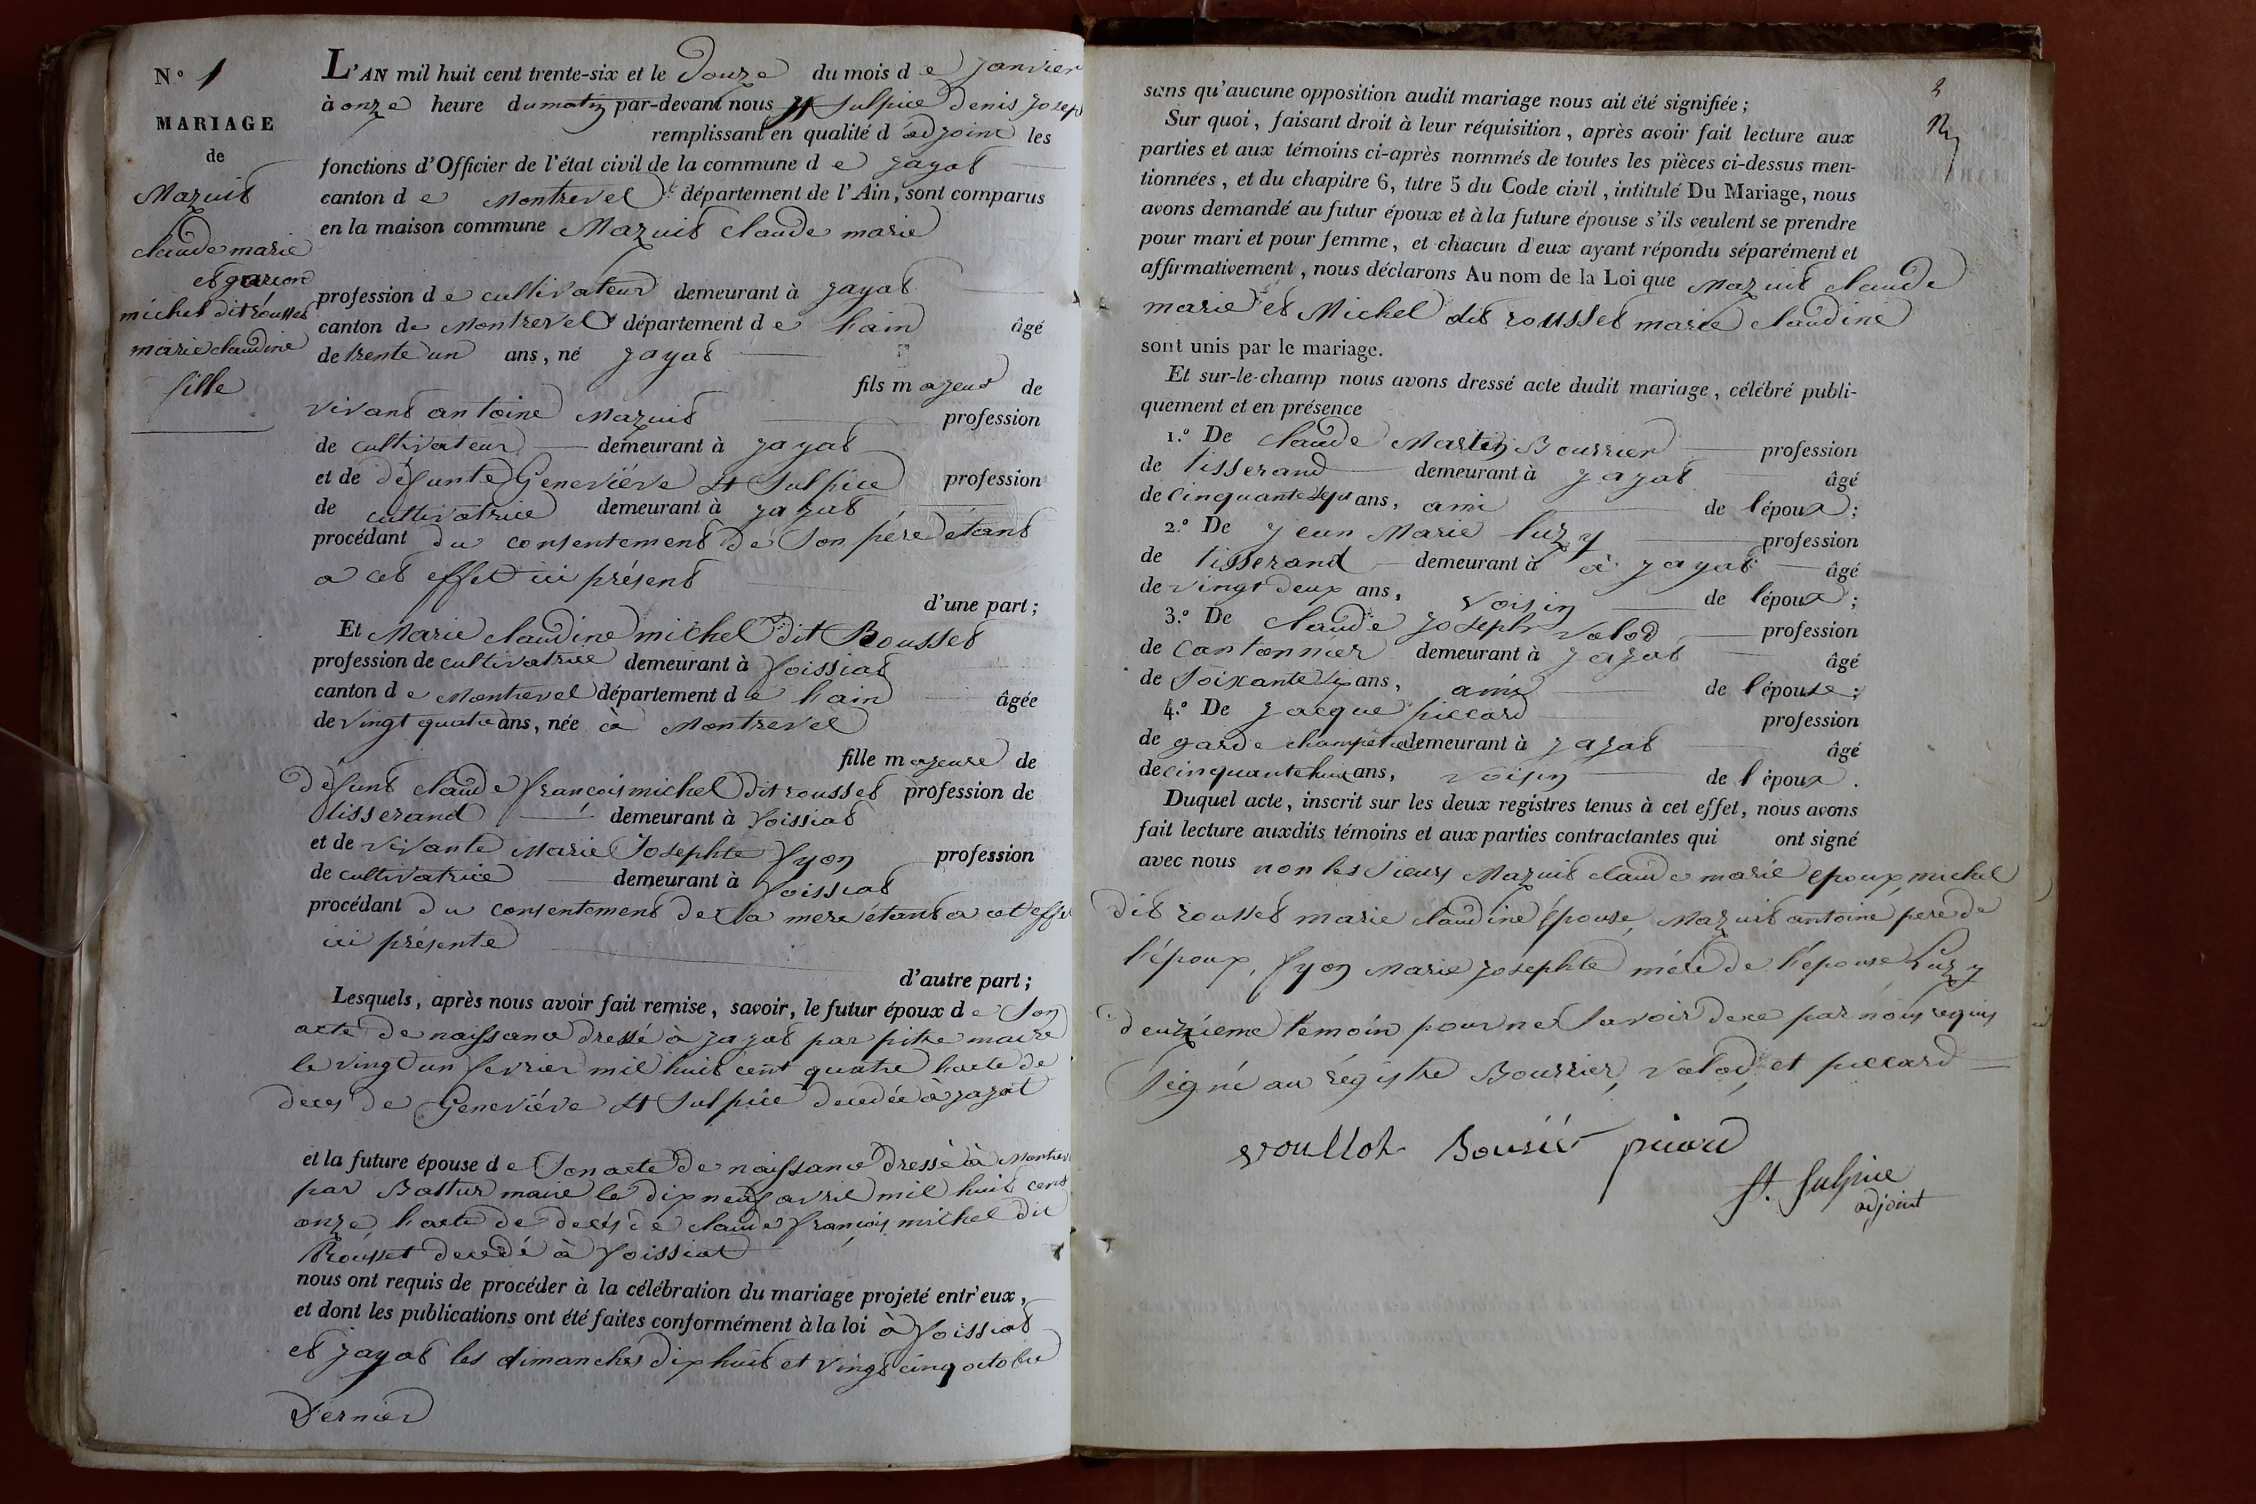 N° 1
MARIAGE
de
Mazuit
claude marie
et garcon
michel dit rousset
marie claudine
fille
L'AN mil huit cent trente-six et le douze du mois de janvier
à onze heure du matin par-devant nous St Sulpice denis joseph
remplissant en qualité d'adjoint les
fonctions d'Officier de l'état civil de la commune de jayat
canton de Montrevel département de l'Ain, sont comparus
en la maison commune Mazuit claude marie
profession de cultivateur demeurant à jayat
canton de Montrevel département de l'ain âgé
de trente un ans, né jayat
fils majeur de
vivant antoine Mazuit profession
de cultivateur demeurant à jayat
et de défunte Geneviéve St Sulpice profession
de cultivatrice demeurant à jayat
procédant du consentement de son pére étant
a cet effet ici présent
d'une part;
Et Marie claudine michel dit Rousset
profession de cultivatrice demeurant à foissiat
canton de Montrevel département de l'ain âgée
de vingt quatre ans, née à Montrevel
fille majeure de
défunt claude francois michel dit rousset profession de
tisserand demeurant à foissiat
et de vivante Marie Josephte fyon profession
de cultivatrice demeurant à foissiat
procédant du consentement de la mere étant a cet effet
ici présente
d'autre part;
Lesquels, après nous avoir fait remise, savoir, le futur époux de son
acte de naissance dressé à jayat par pitre maire
le vingt un fevrier mil huit cent quatre l'acte de
deces de Geneviéve St Sulpice decedée à jayat
et la future épouse de son acte de naissance dressé à Montrevel
par maire le dix neuf avril mil huit cent
onze l'acte de decés de claude françois michel dit
Rousset decedé à foissiat
nous ont requis de procéder à la célébration du mariage projeté entr'eux,
et dont les publications ont été faites conformément à la loi à foissiat
et jayat les dimanches dix huit et vingt cinq octobre
dernier
2
sans qu'aucune opposition audit mariage nous ait été signifiée;
Sur quoi, faisant droit à leur réquisition, après avoir fait lecture aux
parties et aux témoins ci-après nommés de toutes les pièces ci-dessus men-
tionnées, et du chapitre 6, titre 5 du Code civil, intitulé Du Mariage, nous
avons demandé au futur époux et à la future épouse s'ils veulent se prendre
pour mari et pour femme, et chacun d'eux ayant répondu séparément et
affirmativement, nous déclarons Au nom de la Loi que Mazuit claude
marie et Michel dit rousset marie claudine
sont unis par le mariage.
Et sur-le-champ nous avons dressé acte dudit mariage, célébré publi-
quement et en présence
1.° De claude Martin Bourrier profession
de tisserand demeurant à jayat âgé
de cinquante sept ans, ami de l'époux;
2.° De jean Marie luzy profession
de tisserand demeurant à à jayat âgé
de vingt deux ans, voisin de l'époux;
3.° De claude joseph valod profession
de cantonnier demeurant à jayat âgé
de soixante six ans, ami de l'épouse;
4.° De jacque piccard profession
de garde champétre demeurant à jayat âgé
de cinquante huit ans, voisin de l'époux.
Duquel acte, inscrit sur les deux registres tenus à cet effet, nous avons
fait lecture auxdits témoins et aux parties contractantes qui ont signé
avec nous non les sieurs Mazuit claude marie époux, michel
dit rousset marie claudine épouse, Mazuit antoine pere de
l'époux, fyon Marie josephte mére de l'épouse Luzy
deuxieme temoin pour ne savoir de ce par nous requis
signé au régistre Bourrier, valod, et piccard
voullot Bourié picard
St. Sulpice
adjoint